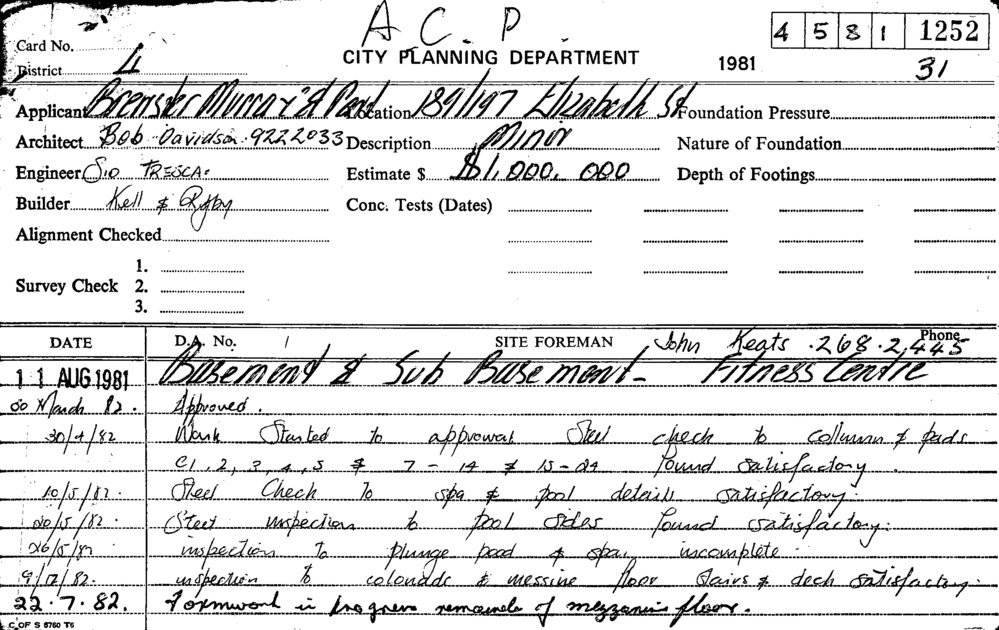 A. C. P.
4 5 8 1 1252
Card No.
CITY PLANNING DEPARTMENT 1981 31
District 4
Applicant Brewster Murray & Location 189/197 Elizabeth St Foundation Pressure
Architect Bob Davidson. 9222033 Description Minor Nature of Foundation
Engineer Sid TRESCA. Estimate $ $1,000,000 Depth of Footings
Builder Kell & Rigby Conc. Tests (Dates)
Alignment Checked
1.
Survey Check 2.
3.
DATE D.A. No. 1 SITE FOREMAN John Keats . 268.2445 Phone
11 AUG 1981 Basement & Sub Basement - Fitness Centre
March 82. Approved.
30/4/82 Work Started to approval Steel check to collumn & pads
C1, 2, 3, 4, 5 & 7 - 14 & 15 - 24 found satisfactory
10/5/82. Steel Check to spa & pool details satisfactory.
20/5/82. Steel inspection to pool sides found satisfactory.
26/5/82 inspection to plunge pool & spa, incomplete.
82. inspection to colonade & messine floor stairs & deck satisfactory.
22.7.82. Formwork in progress remainder of mezzanine floor.
C OF S 5760 T6